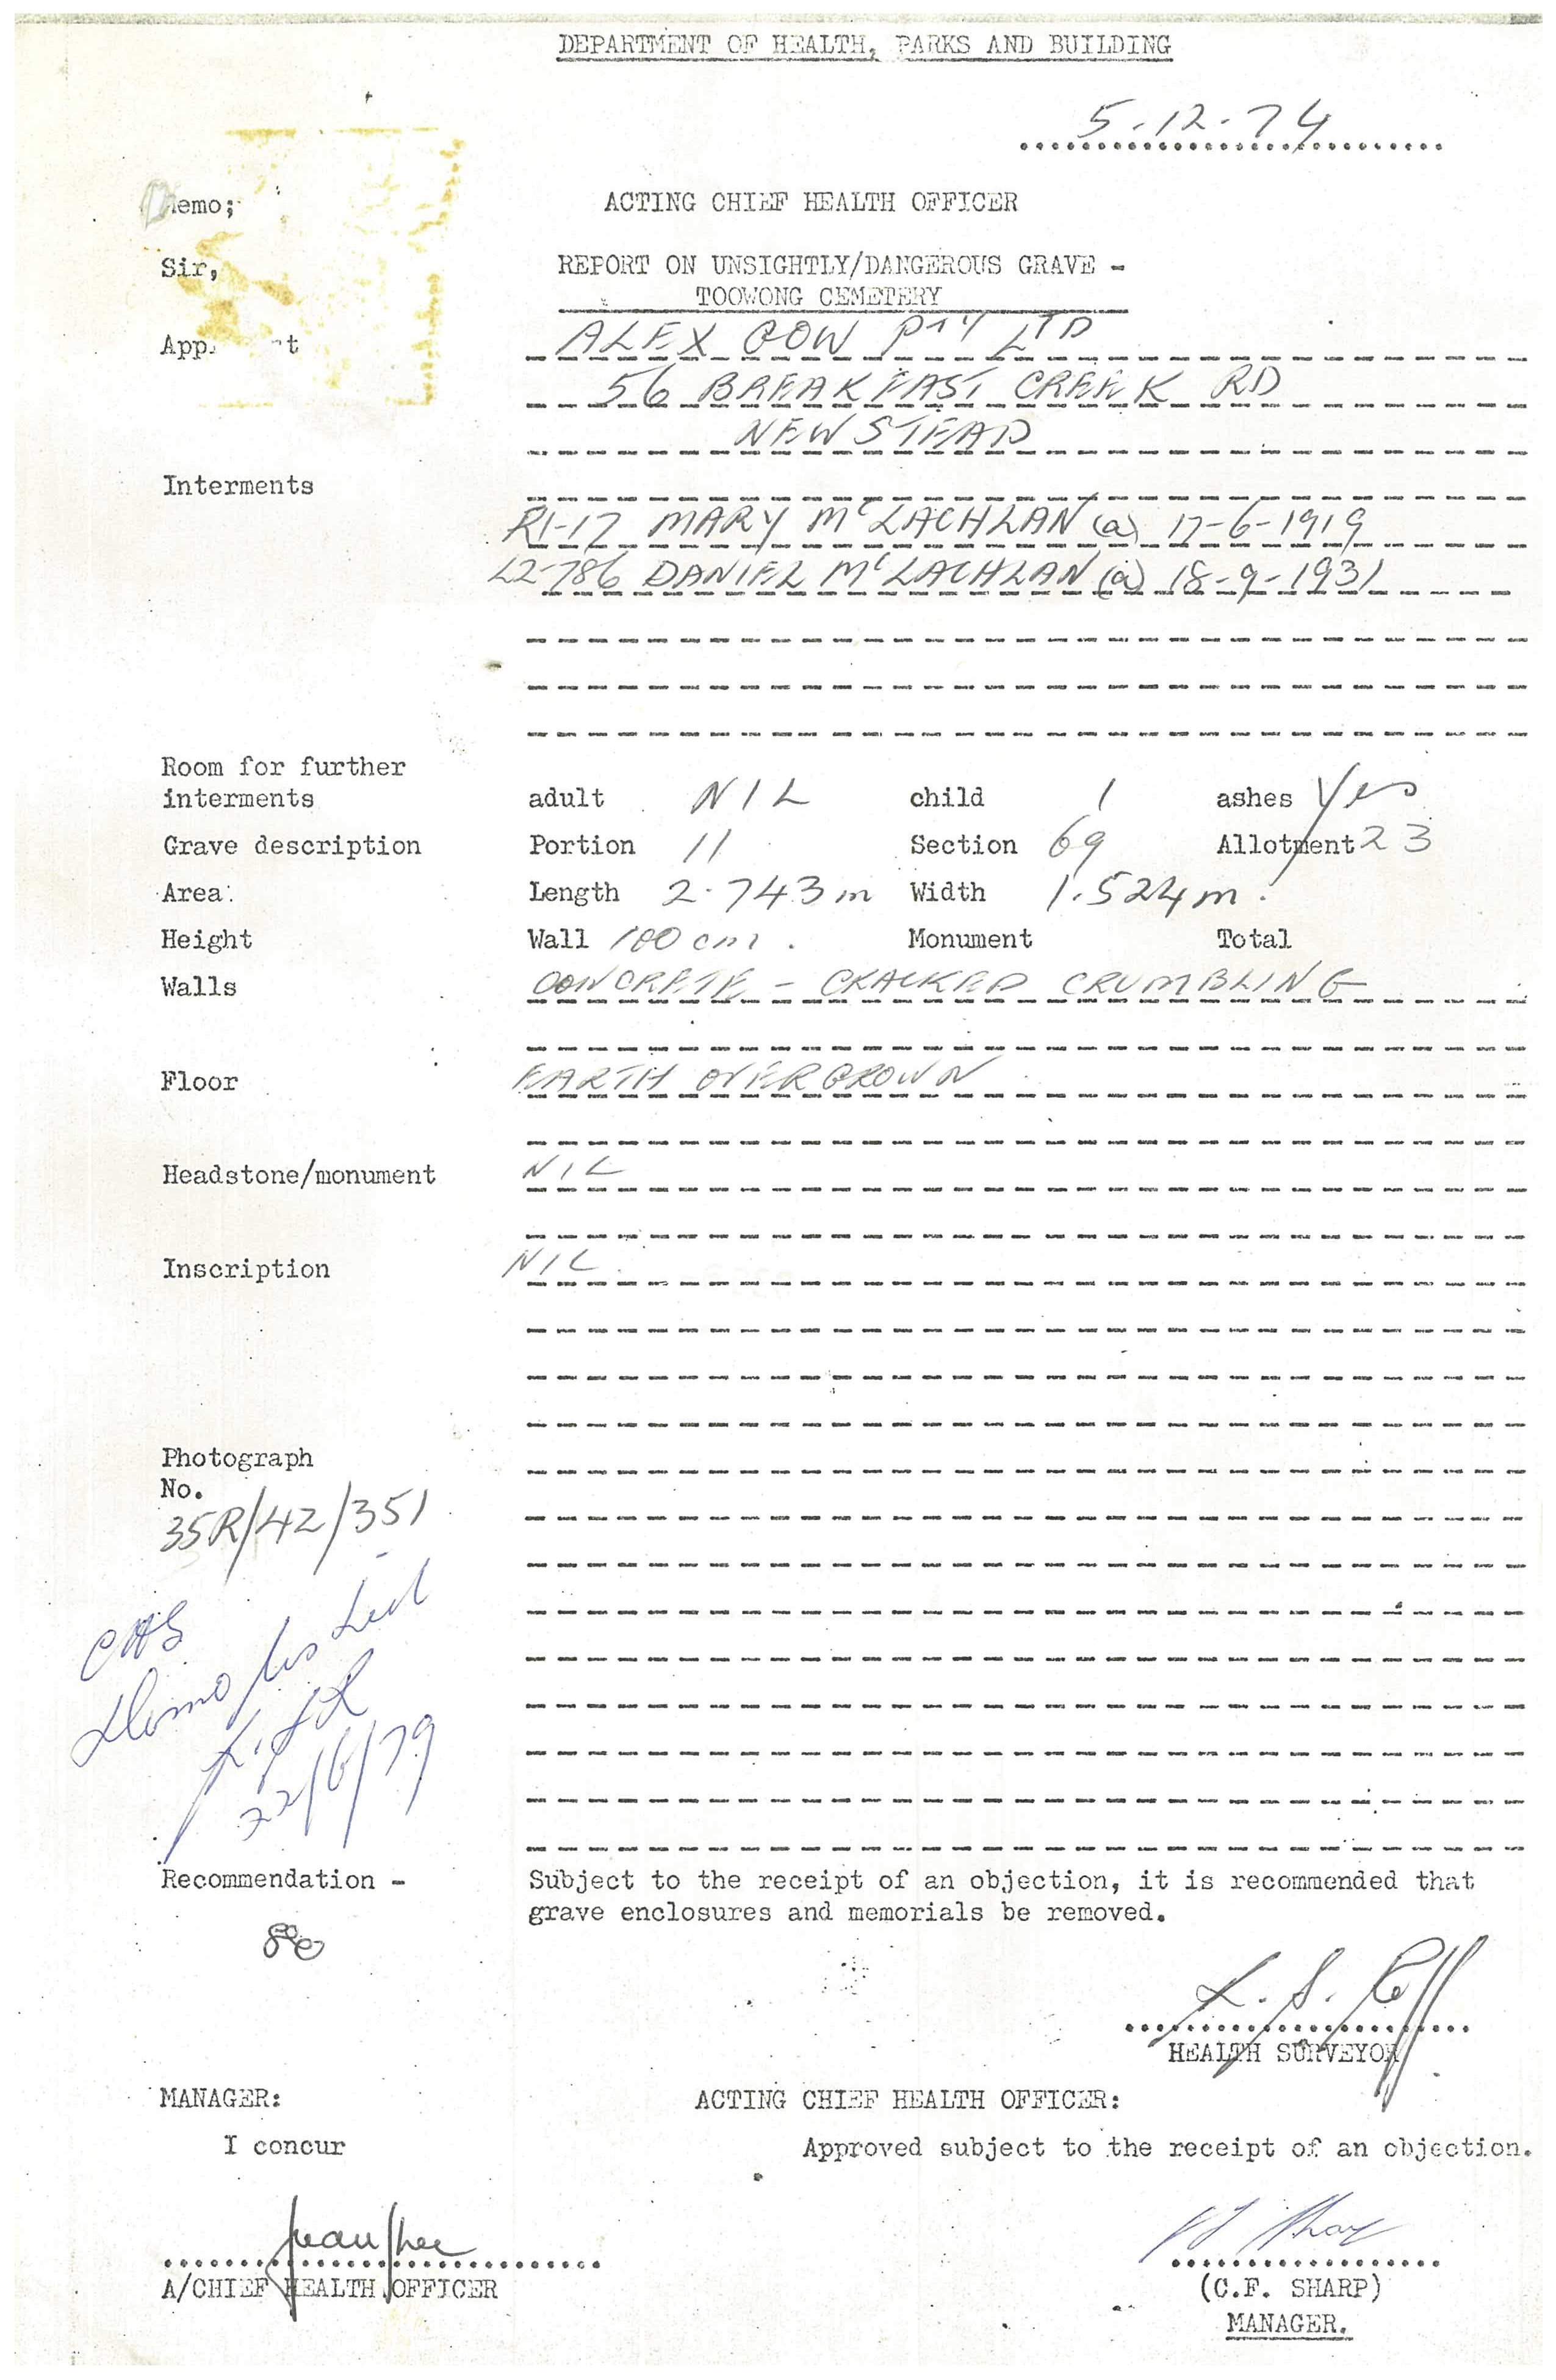 DEPARTMENT OF HEALTH, PARKS AND BUILDING
5-12-74
Memo; ACTING CHIEF HEALTH OFFICER
Sir, REPORT ON UNSIGHTLY/DANGEROUS GRAVE -
TOOWONG CEMETERY
ALEX GOW PTY LTD
56 BREAKFAST CREEK RD
NEWSTEAD
Interments
R1-17 MARY McLACHLAN (a) 17-6-1919
L2-786 DANIEL McLACHLAN (a) 18-9-1931
Room for further
interments adult NIL child 1 ashes Yes
Grave description Portion 11 Section 69 Allotment 23
Area: Length 2.743m Width 1.524m.
Height Wall 100 cm. Monument Total
Walls CONCRETE - CRACKED CRUMBLING
Floor EARTH OVERGROWN
Headstone/monument NIL
Inscription NIL.
Photograph
No.
35R/42/351
22/6/79
Recommendation - Subject to the receipt of an objection, it is recommended that
grave enclosures and memorials be removed.
HEALTH SURVEYOR
MANAGER: ACTING CHIEF HEALTH OFFICER:
I concur Approved subject to the receipt of an objection.
A/CHIEF HEALTH OFFICER (C.F. SHARP)
MANAGER.